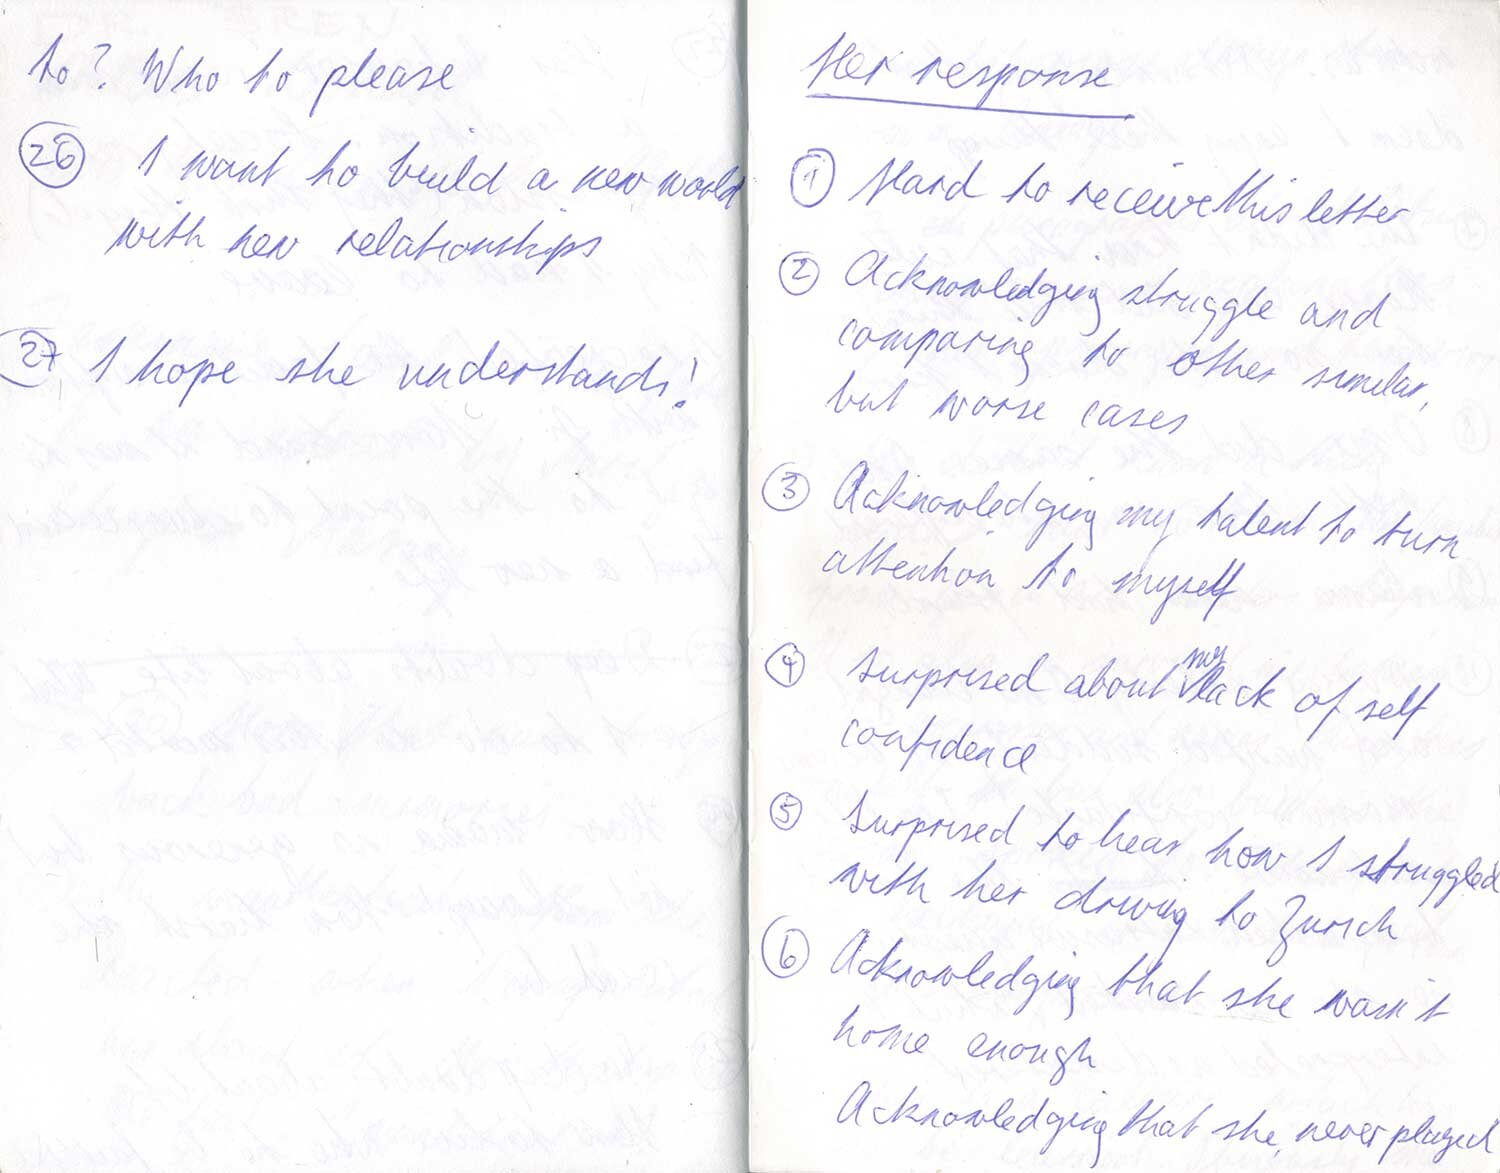 to? Who to please
26 I want to build a new world
with new relationships
27 I hope she understands!
Her response
1 Hard to receive this letter
2 Acknowledging struggle and
comparing to other similar,
but worse cases
3 Acknowledging my talent to turn
attention to myself
4 Surprised about my lack of self
confidence
5 Surprised to hear how I struggled
with her driving to Zurich
6 Acknowledging that she wasn't
home enough
Acknowledging that she never played